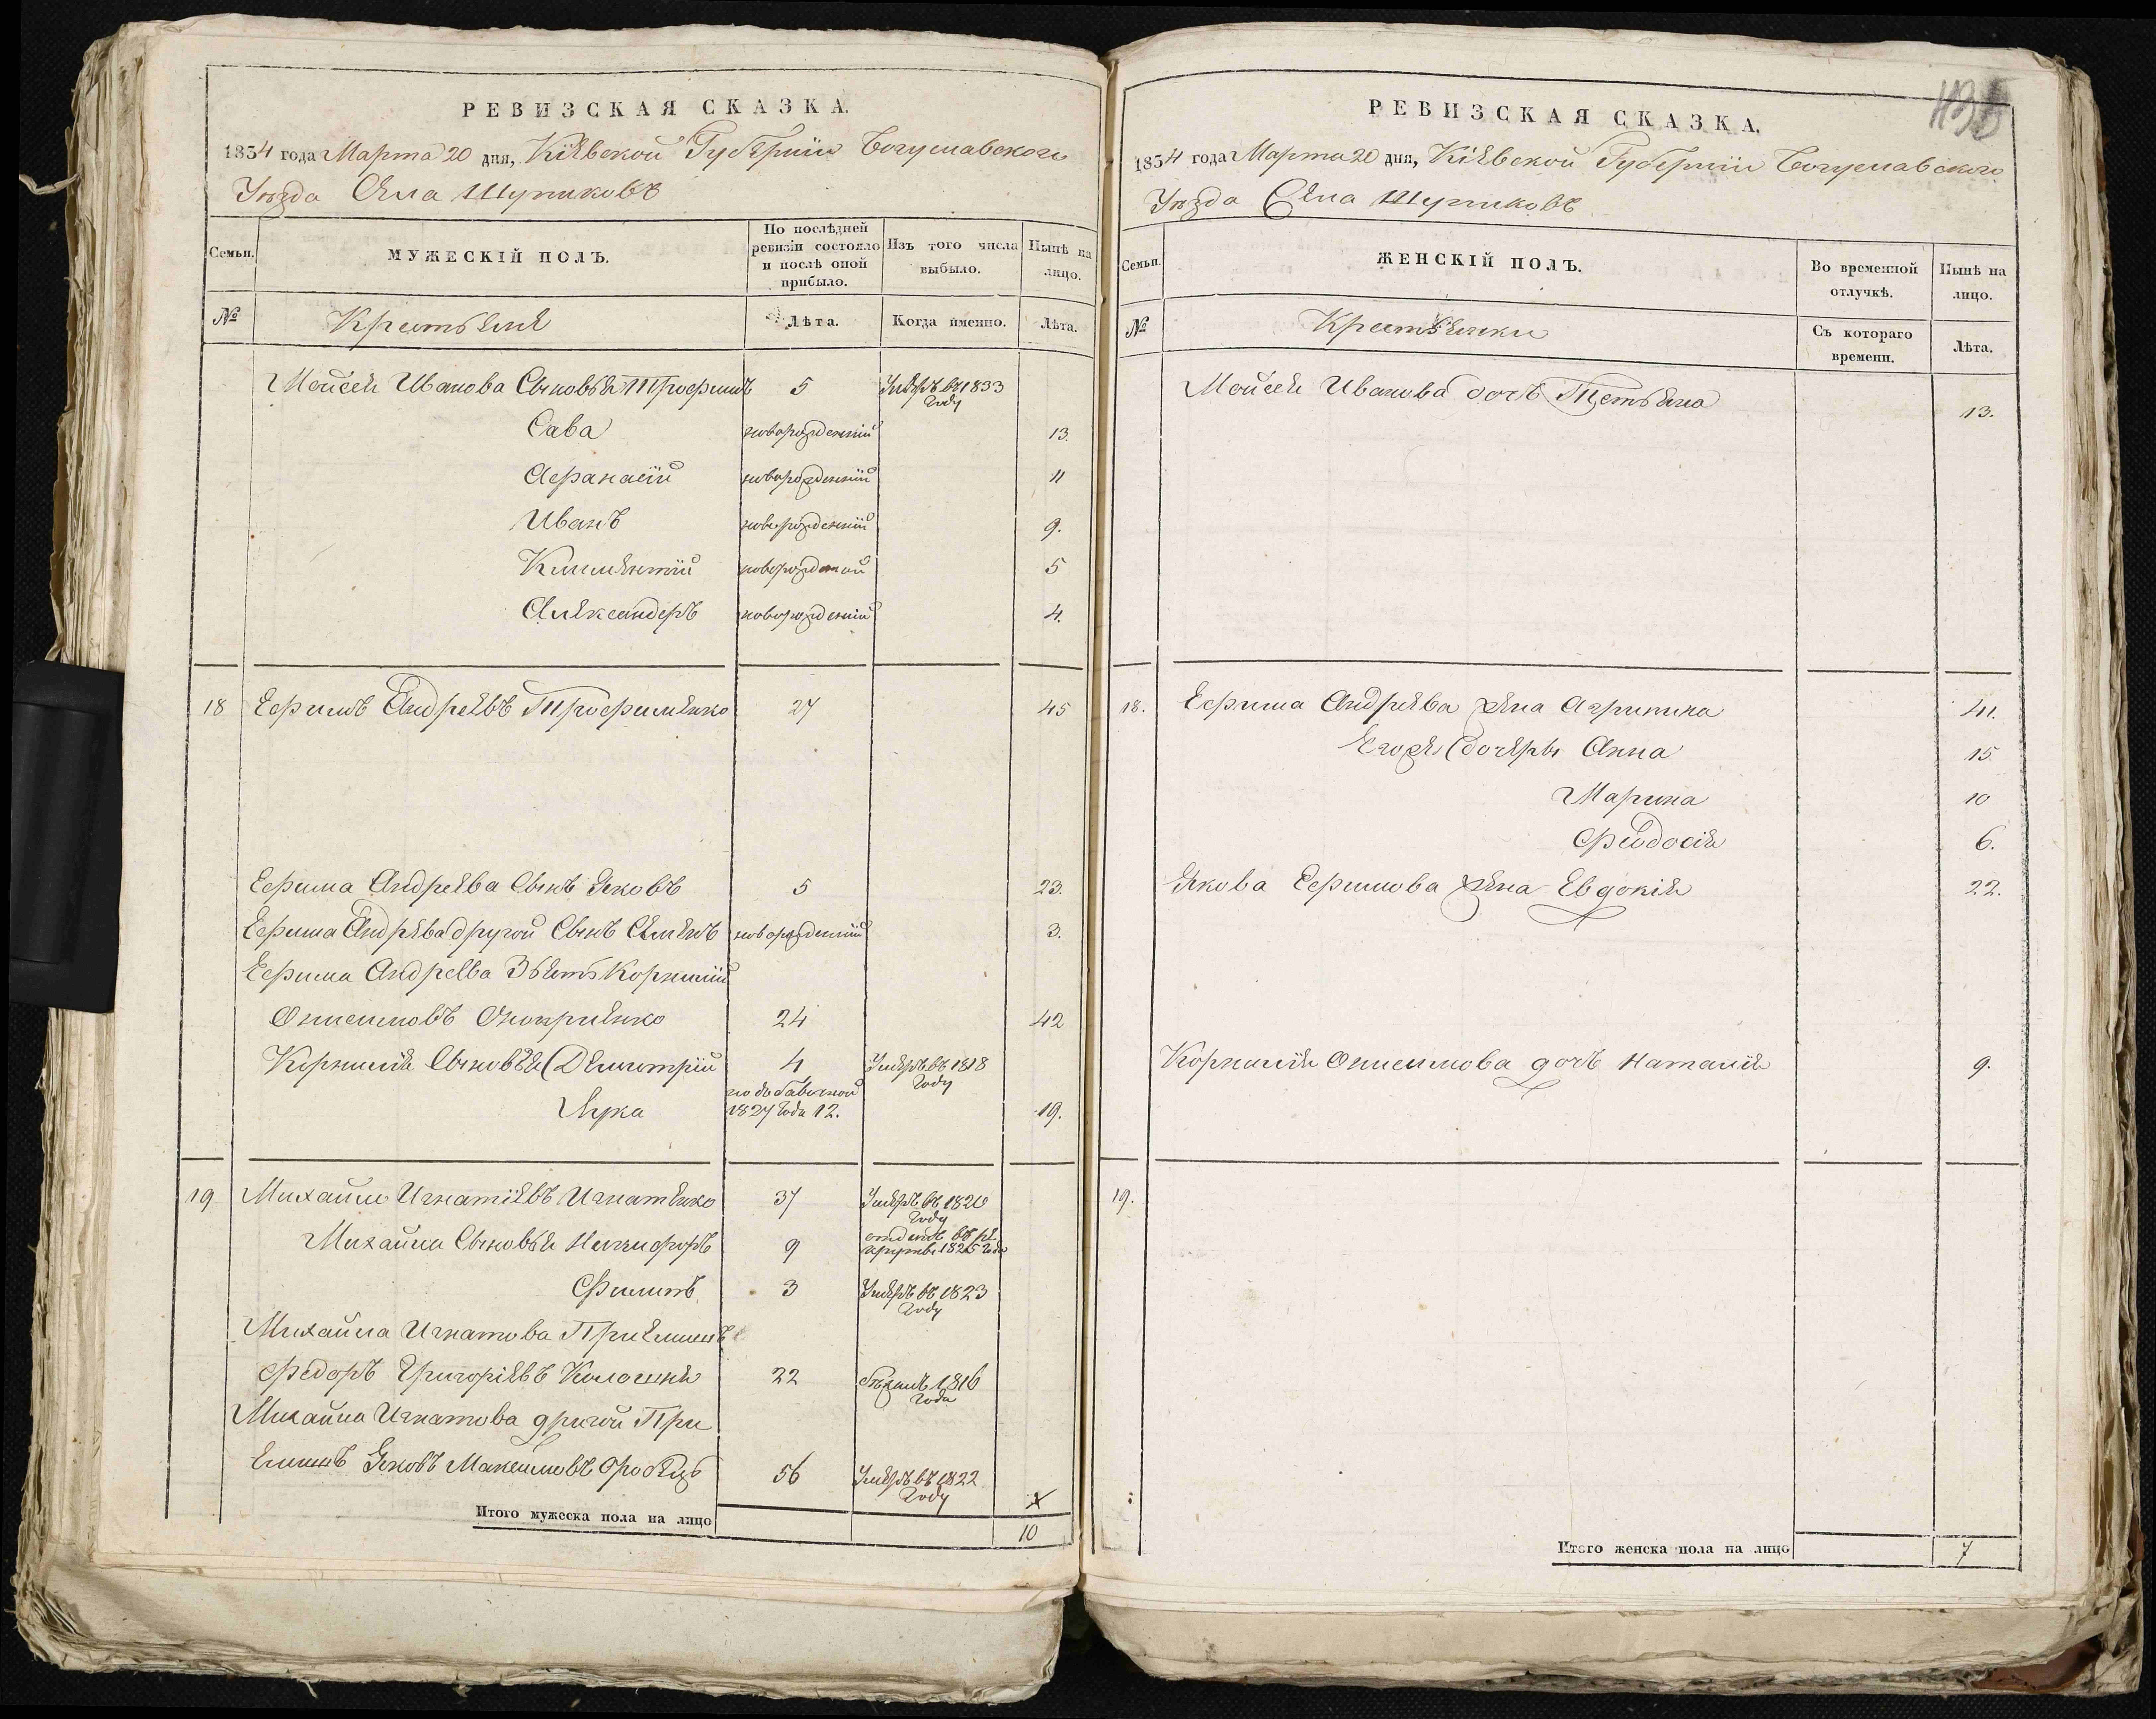 РЕВИЗСКАЯ СКАЗКА.
1834 года Марта 20 дня, Кіевской Губерніи Богуславского
Уѣзда Села Шупиковъ
Семьи.
МУЖЕСКІЙ ПОЛЪ.
По послѣдней ревизіи состояло и послѣ оной прибыло.
Изъ того числа выбыло.
Нынѣ на лицо.
№
Крестьяне
Лѣта.
Когда именно.
Лѣта.
Мойсея Иванова Сыновья Трофимъ 5 Умеръ въ 1833 году
Сава новорожденній 13.
Афанасій новорожденній 11
Иванъ новорожденній 9.
Климентій новорожденній 5
Александеръ новорожденній 4.
18 Ефимъ Андреевъ Трофименко 27 45
Ефима Андреева Сынъ Яковъ 5 23.
Ефима Андрева другой Сынъ Семенъ новорожденній 3.
Ефима Андреева Зять Корнилій
Онисимовъ Оноприенко 24 42
Корнилія Сыновья Демитрій 4 Умеръ въ 1818 году
Лука по добавочной 1827 года 12. 19.
19 Михайло Игнатіевъ Игнатенко 37 Умеръ въ 1820 году
Михайла Сыновья Ничифоръ 9 отданъ въ рекруты 1825 года
Филипъ 3 Умеръ въ 1823 году
Михайла Игнатова Приемишъ
Федоръ Григоріевъ Колошня 22 бѣжалъ 1816 года
Михайла Игнатова другой При
емишъ Яковъ Максимовъ 56 Умеръ въ 1822 году x
Итого мужеска пола на лицо 10
РЕВИЗСКАЯ СКАЗКА.
1834 года Марта 20 дня, Кіевской Губерніи Богуславского
Уѣзда Села Шупиковъ
Семьи.
ЖЕНСКІЙ ПОЛЪ.
Во временной отлучкѣ.
Нынѣ на лицо.
№
Крестьянки
Съ котораго времени.
Лѣта.
Мойсея Иванова дочь Тетьяна 13.
18. Ефима Андреева жена Агрипина 41.
Егожъ дочеры Анна 15
Марина 10
Феодосія 6.
Якова Ефимова жена Евдокія 22.
Корнилія Онисимова дочь Наталія 9.
19.
Итого женска пола на лицо 7